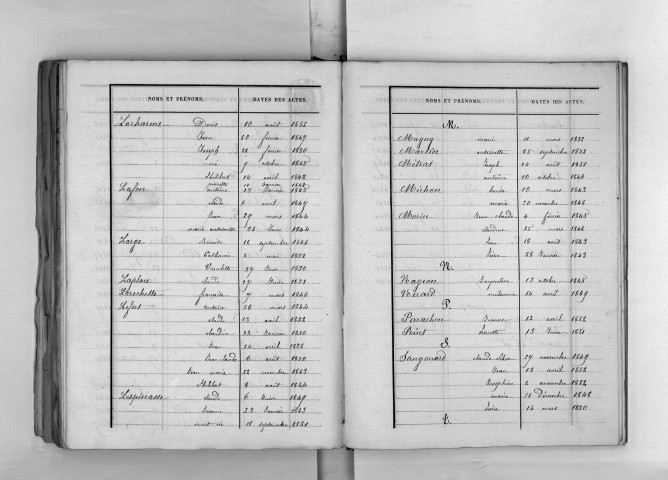 NOMS ET PRÉNOMS. DATES DES ACTES.
Lacharme Denis 10 août 1852
Jean 10 février 1847
Joseph 28 février 1850
9 octobre 1845
Philibert 14 avril 1848
pierrette 10 Janvier 1848
Lafon antoine 22 Janvier 1845
claude 6 avril 1847
Jean 29 mars 1844
marie antoinette 24 février 1844
Large Benoite 18 septembre 1846
Catherine 2 mai 1852
27 1850
Laplace claude 17 février 1851
Larochette françoise 7 mars 1846
Lefort antoine 28 mars 1844
claude 13 avril 1852
claudine 22 Janvier 1850
Jean 24 avril 1852
Jean claude 6 août 1850
Jean marie 12 novembre 1843
Philibert 8 août 1846
Lespinasse claude 6 février 1849
Jeanne 23 Janvier 1843
mort-né 18 septembre 1851
NOMS ET PRÉNOMS. DATES DES ACTES.
M.
Magny marie 11 mars 1852
Martin antoinette 25 septembre 1852
Métras Joseph 14 août 1851
antoine 10 octobre 1846
Michon Louise 10 mars 1843
marie 20 novembre 1848
Morin Jean claude 4 février 1848
claudine 15 mars 1846
18 août 1843
28 Janvier 1843
N.
Nageon 13 octobre 1845
Nérard 14 avril 1849
P.
Perrachon Jeanne 12 avril 1852
Point Pierrette 15 février 1851
S.
Sangouard claude 27 novembre 1849
Jean 18 avril 1852
Joséphine 2 novembre 1852
marie 11 décembre 1848
14 mars 1850
T.